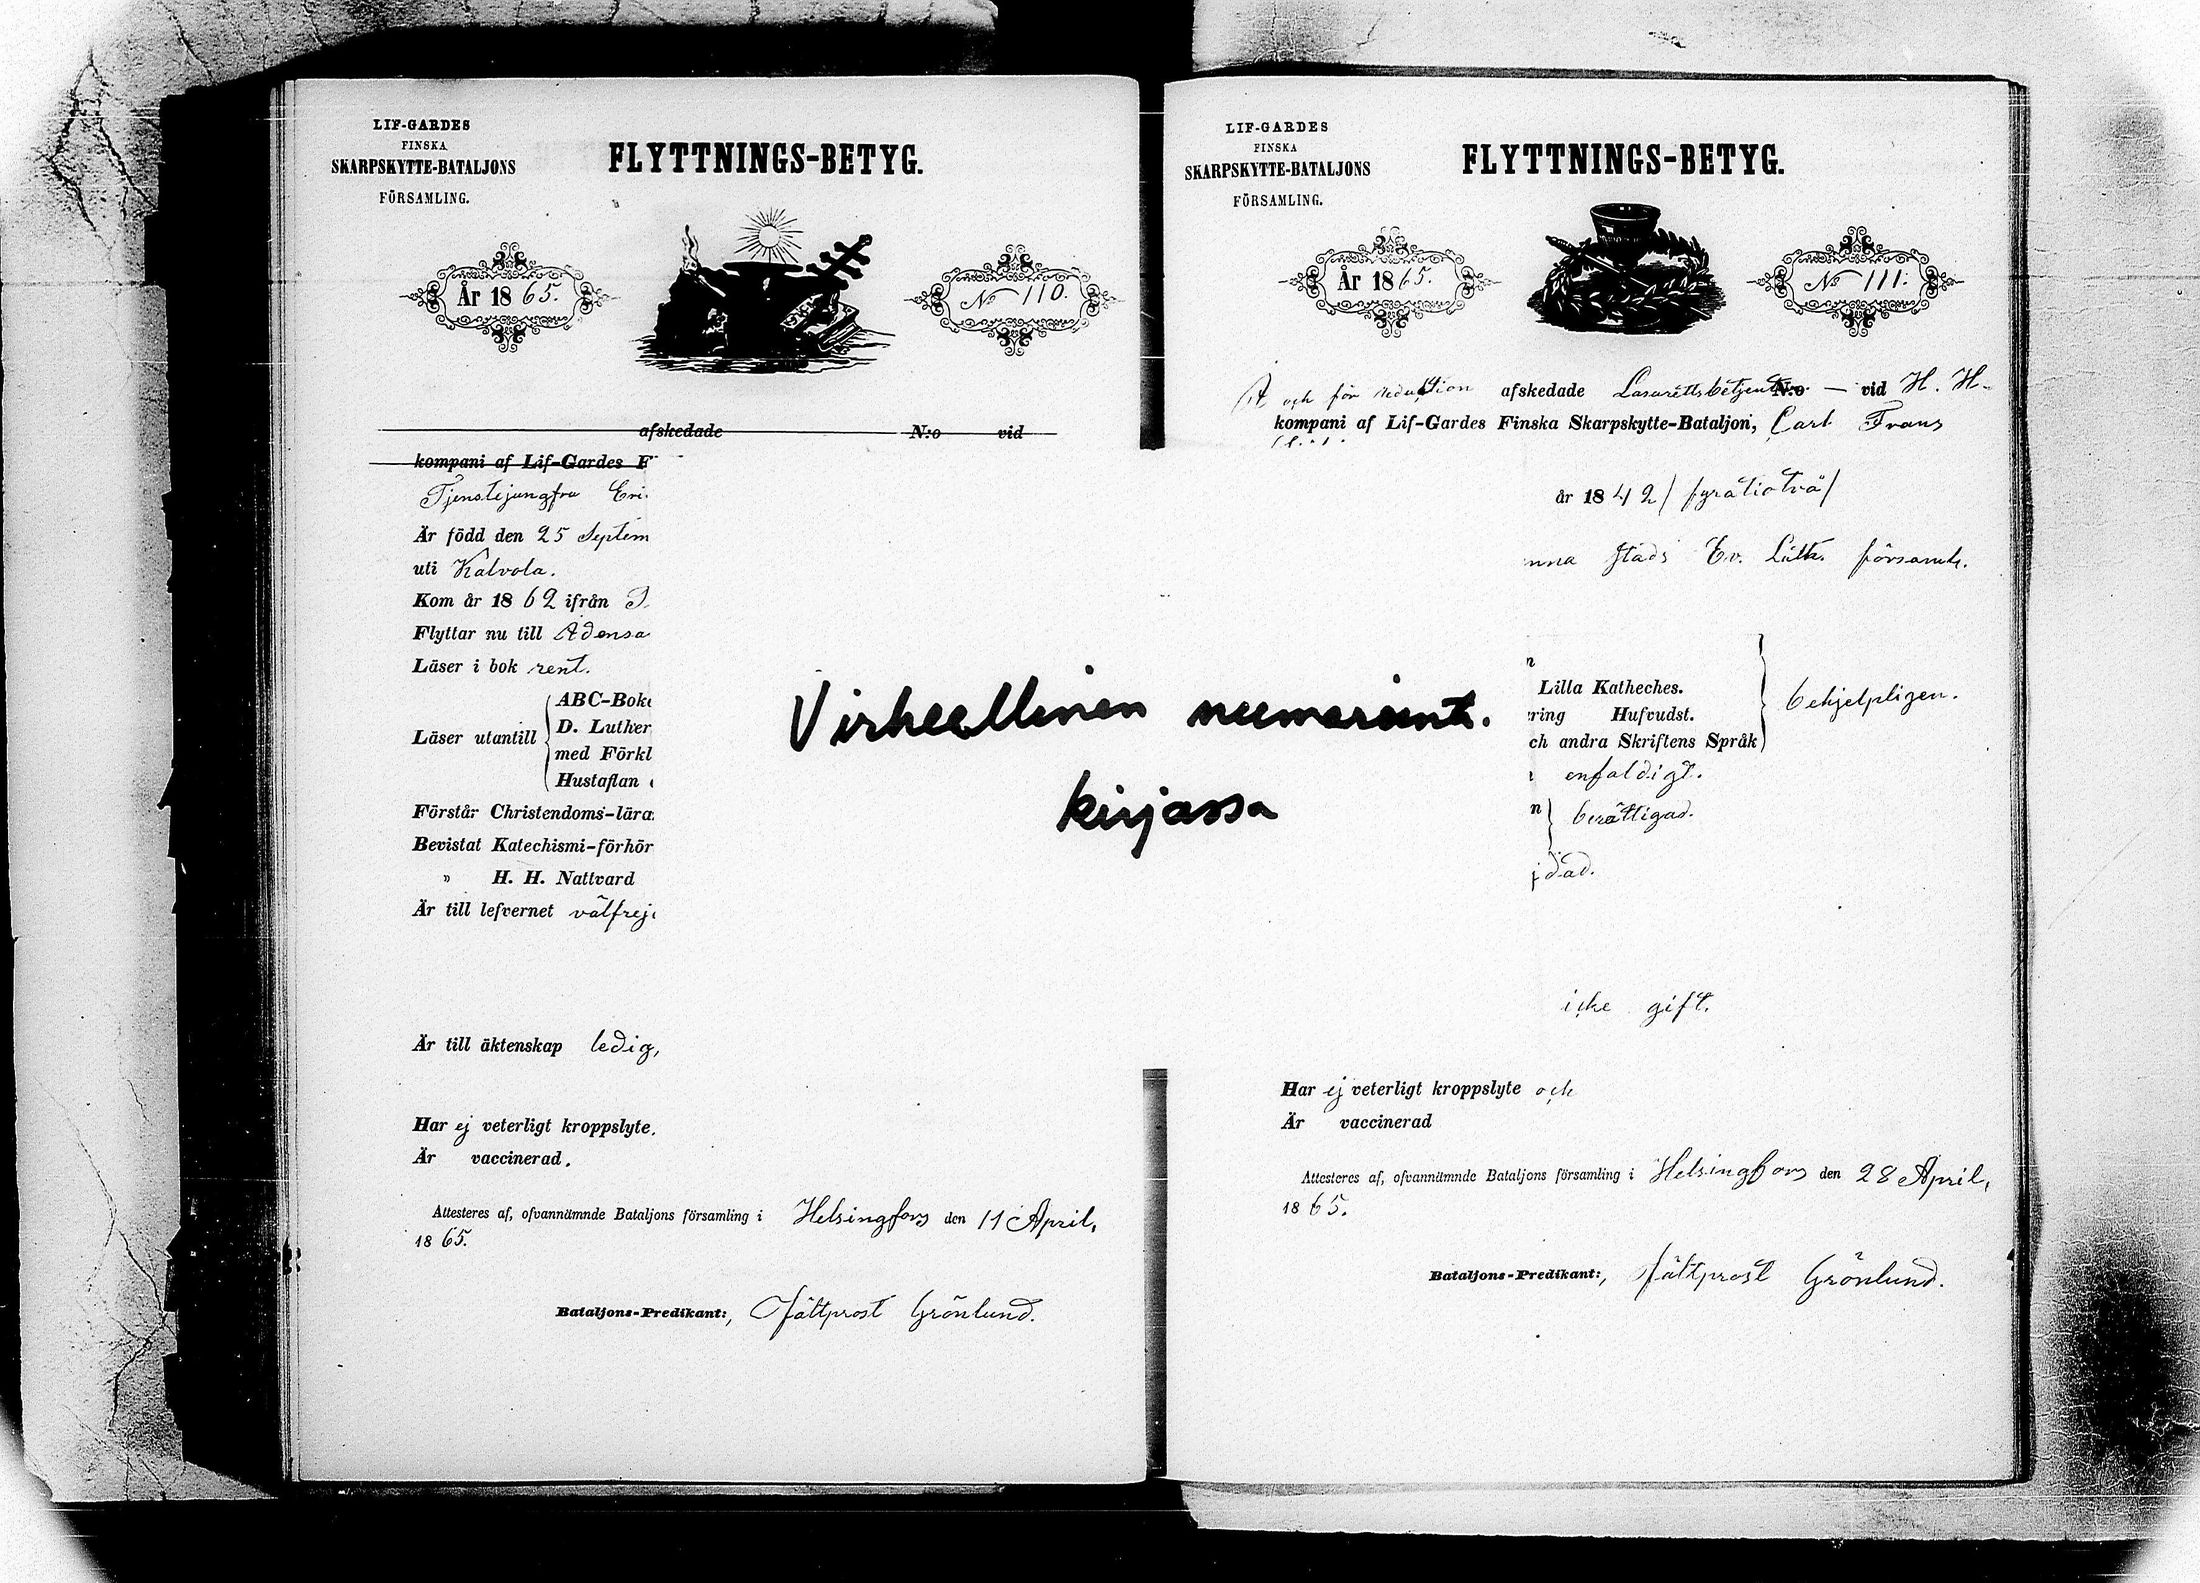 LIF-GARDES
FINSKA
SKARPSKYTTE-BATALJONS
FÖRSAMLING.
FLYTTNINGS-BETYG.
År 1865.
No 110.
afskedade N:o vid
kompani af Lif-Gardes F
Tjenstejungfru Eri
Är född den 25 Septem
uti Kalvola.
Kom år 1862 ifrån
Flyttar nu till Adensa
Läser i bok rent.
Läser utantill
ABC-Boke
D. Luther
med Förkl
Hustaflan
Förstår Christendoms-lära
Bevistat Katechismi-förhör
" H. H. Nattvard
Är till lefvernet välfrej
Är till äktenskap ledig,
Har ej veterligt kroppslyte.
Är vaccinerad.
Attesteres af, ofvannämnde Bataljons församling i Helsingfors den 11 April,
1865.
Bataljons-Predikant:, Fältprost Grönlund.
Virheellinen numeroint.
kirjassa
LIF-GARDES
FINSKA
SKARPSKYTTE-BATALJONS
FÖRSAMLING.
FLYTTNINGS-BETYG.
År 1865.
No 111.
och för reduktion afskedade Lasarettsbetjent N:o — vid H. H-
kompani af Lif-Gardes Finska Skarpskytte-Bataljon, Carl Frans
år 1842/fyratiotvå/
nna stads Ev. Luth. församl.
n
Lilla Katheches.
ring Hufvudst.
ch andra Skriftens Språk
behjelpligen.
enfaldigt.
n berättigad.
jdad.
icke gift.
Har ej veterligt kroppslyte och
Är vaccinerad
Attesteres af, ofvannämnde Bataljons församling i Helsingfors den 28 April,
1865.
Bataljons-Predikant:, Fältprost Grönlund.